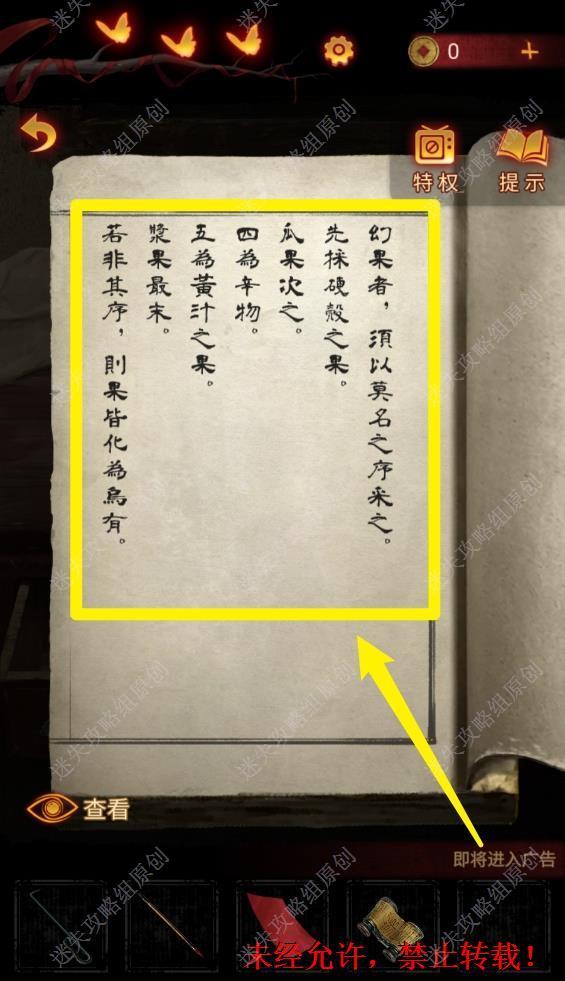 0
特权
提示
幻果者，須以莫名之序采之。
先採硬殼之果。
瓜果次之。
四為辛物。
五為黃汁之果。
漿果最末。
若非其序，則果皆化為烏有。
查看
即将进入广告
未经允许，禁止转载！
迷失攻略组原创